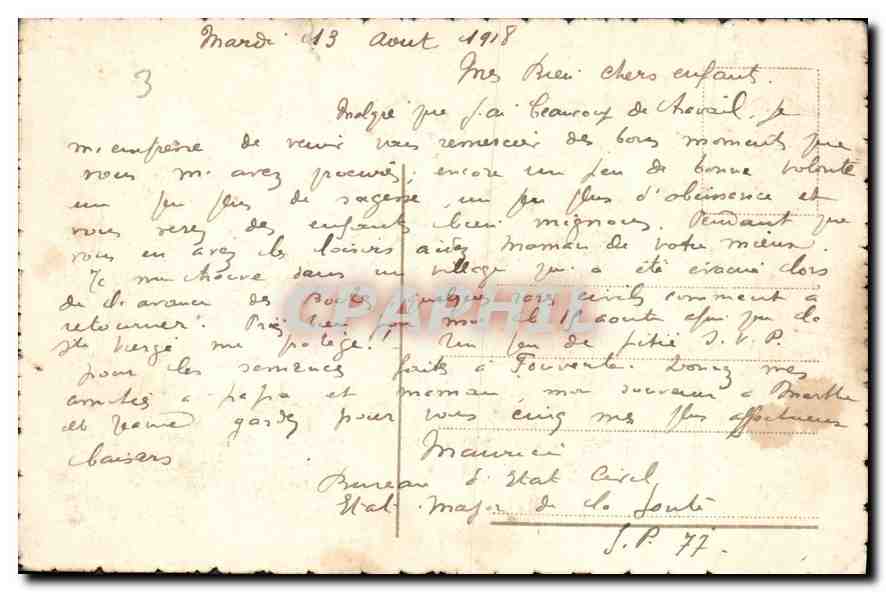 Mardi 13 Aout 1918
3
Mes Bien chers enfants.
Malgré que j'ai beaucoup de travail, je
m'empresse de venir vous remercier des bons moments que
vous m'avez procurés, encore un peu de bonne volonté
un peu plus de sagesse, un peu plus d'obeissance et
vous serez des enfants bien mignons. Pendant que
vous en avez les loisirs aidez Maman de votre mieux.
Je me trouve dans un village qui a été évacué lors
de l'avance des Boches, quelques rares civils comment à
retourner. Priez bien pour moi le 15 aout afin que la
Ste Vierge me protège! Un peu de pitié S.V.P.
pour les semences faites à Fouvent. Donnez mes
amitiés à papa et maman, mon souvenir à Marthe
et Jeanne gardez pour vous cinq mes plus affectueux
baisers
Maurice
Bureau d'Etat Civil
Etat-Major de la
S.P. 77.
CPAPHIL